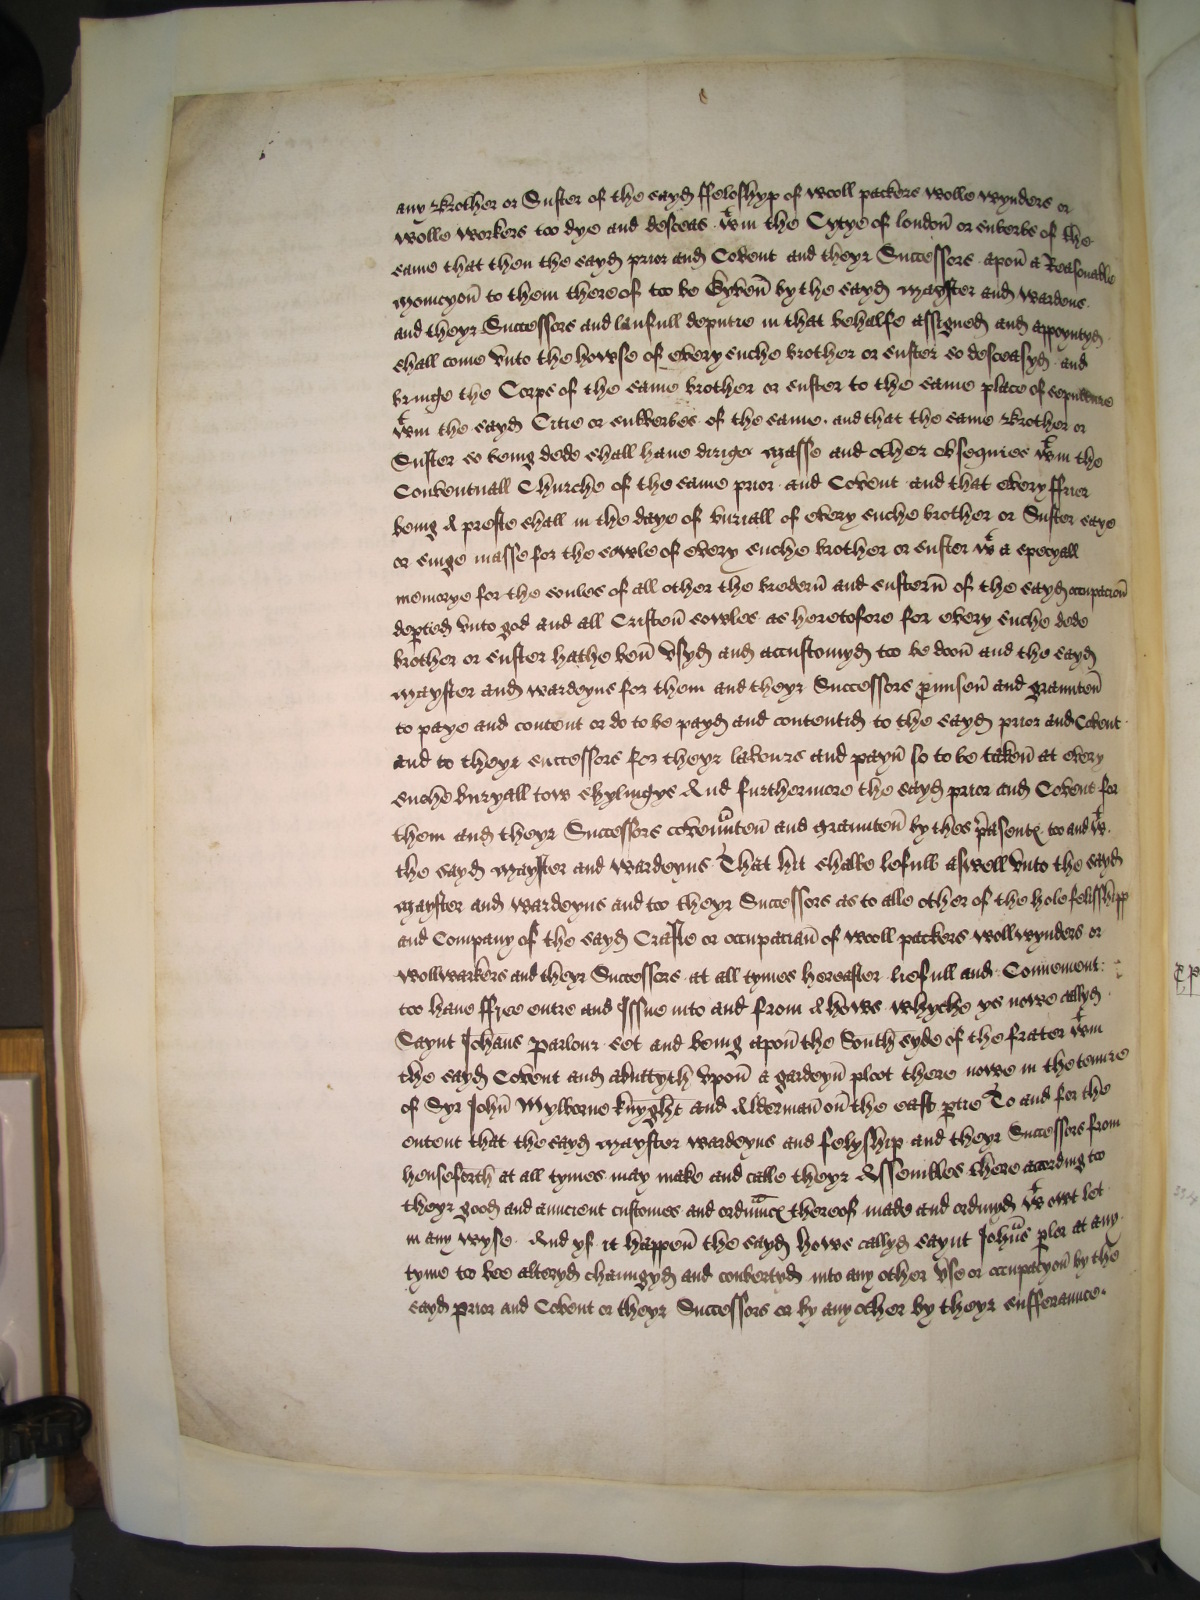 any Brother or Suster of the sayd ffeloshyp of wooll packers wolle wynders or
wolle workers too dye and desceas wᵗin the Cytye of londoñ or suberbs of the
same that then the sayd prior and Covent and theyr Successors apoñ a Reasonable
monicyoñ to them thereof too be Gyveñ by the sayd mayster and wardens
and theyr Successors and laufull deputie in that behalfe assigned and appoyntyd
shall come vnto the howse of every suche brother or suster so desceasyd and
bringe the Corps of the same brother or suster to the same place of sepulture
wᵗin the sayd Citie or subberbes of the same. and that the same Brother or
Suster so being dede shall haue dirige masse and other obsequies wᵗin the
Conventuall Churche of the same prior and Covent and that every ffrier
being A preste shall in the daye of buriall of every suche brother or Suster saye
or singe masse for the sowle of every suche brother or suster wᵗ a specyall
memorye for the soules of all other the brederñ and susterñ of the sayd occupacioñ
depted vnto god and all Cristeñ sowles as heretofore for every suche dede
brother or suster hathe beñ vsyd and accustomyd too be dooñ and the sayd
mayster and wardeyns for them and theyr Successors pmiseñ and graunteñ
to paye and content or do to be payd and contentid to the sayd prior and Covent
and to theyr successors for theyr labours and payñ so to be takeñ at every
suche buryall tow shylingys And furthermore the sayd prior and Covent for
them and theyr Successors covenᵃnteñ and graunteñ by thes pasentꝭ too and wᵗ
the sayd mayster and wardeyns That hit shalbe lefull aswell vnto the sayd
mayster and wardeyns and too theyr Successors as to alle other of the hole felisshipp
and Company of the sayd Crafte or occupaciañ of wooll packers wollwynders or
wollwarkers and theyr Successors at all tymes hereafter liefull and Convenient
too haue ffree entre and Issue into and from A hows whyche ys nowe callyd
Saynt Johans parlour set and being apoñ the Southsyde of the frater wᵗin
the sayd Covent and abuttyth vpoñ a gardeyñ ploot there nowe in the tenure
of Syr Johñ Mylborne knyght and Aldermañ oñ the east ptie To and for the
entent that the sayd mayster wardeyns and felyship and theyr Successors from
hensforth at all tymes may make and calle theyr Assembles there according too
theyr good and auncient customes and ordinᵃncꝭ thereof made and ordinyd wᵗ owt let
in any wyse. And yf it happeñ the sayd hows callyd saynt Johñs plor at any
tyme too bee alteryd chaungyd and convertyd into any other vse or occupacyoñ by the
sayd prior and Covent or theyr Successors or by any other by theyr sufferaunce.